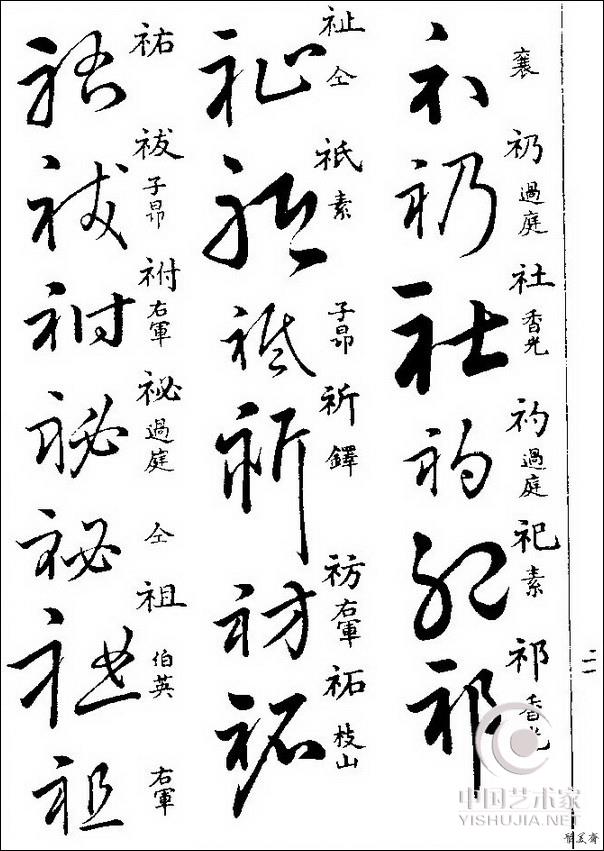 襄
礽 過庭
社 香光
礿 過庭
祀 素
祁 香光
祉 仝
祇 素
子昂
祈 鐸
祊 右軍
祏 枝山
祐
祓 子昂
祔 右軍
祕 過庭
仝
祖 伯英
右軍
二一
中国艺术家
YISHUJIA.NET